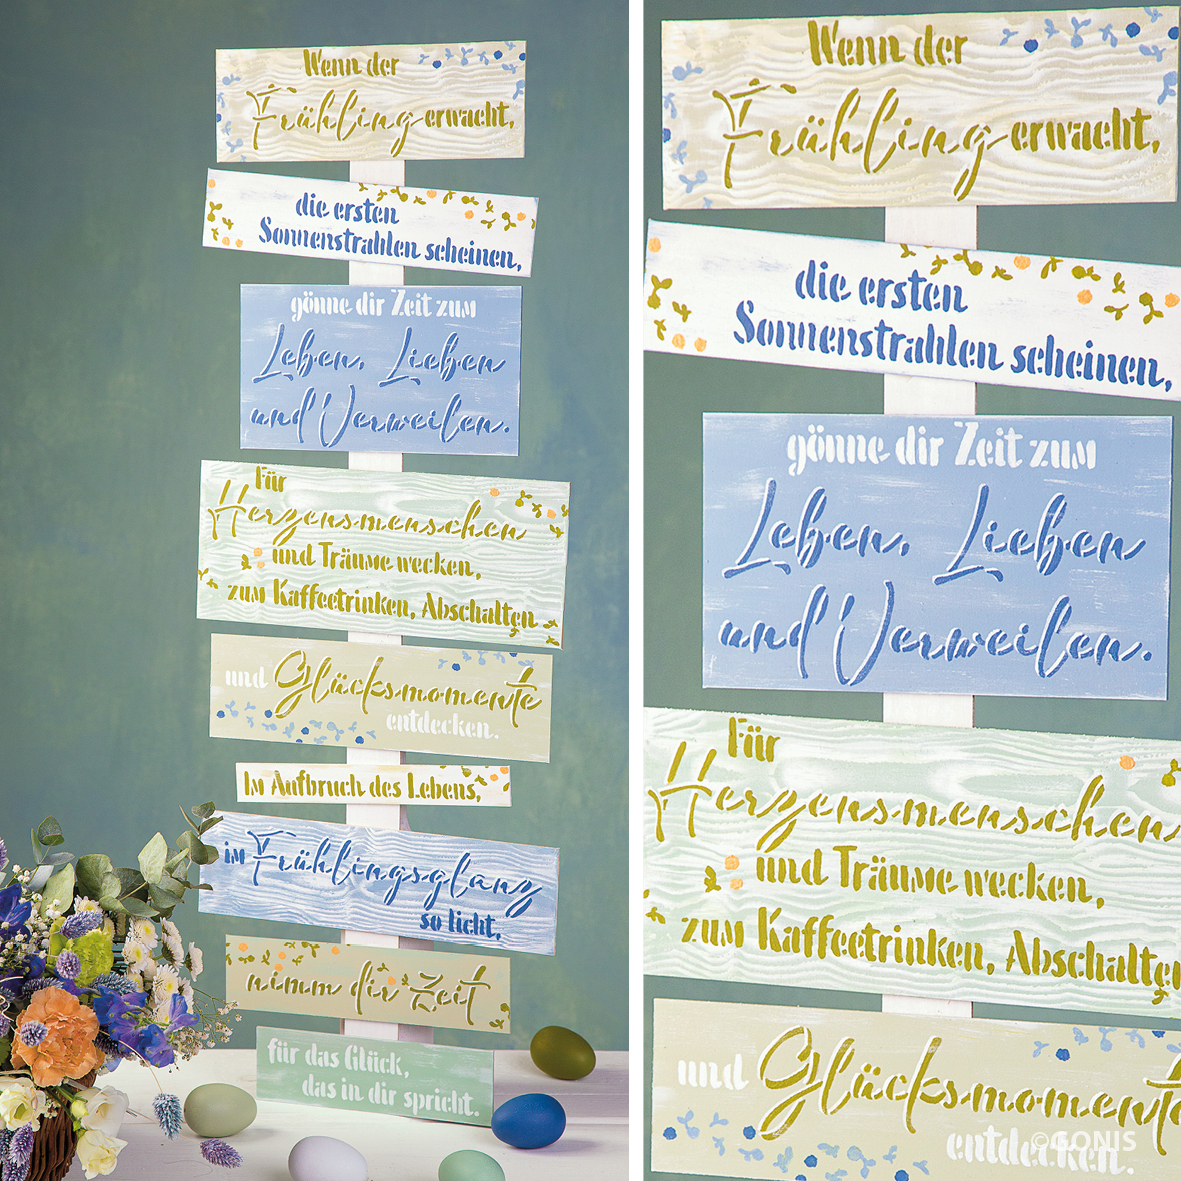 Wenn der
Frühling erwacht,
die ersten
Sonnenstrahlen scheinen,
gönne dir Zeit zum
Leben, Lieben
und Verweilen.
Für
Herzensmenschen
und Träume wecken,
zum Kaffeetrinken, Abschalten
und Glücksmomente
entdecken.
Im Aufbruch des Lebens,
im Frühlingsglanz
so licht,
nimm dir Zeit
für das Glück,
das in dir spricht.
Wenn der
Frühling erwacht,
die ersten
Sonnenstrahlen scheinen,
gönne dir Zeit zum
Leben, Lieben
und Verweilen.
Für
Herzensmenschen
und Träume wecken,
zum Kaffeetrinken, Abschalten
und Glücksmomente
entdecken.
©GONIS